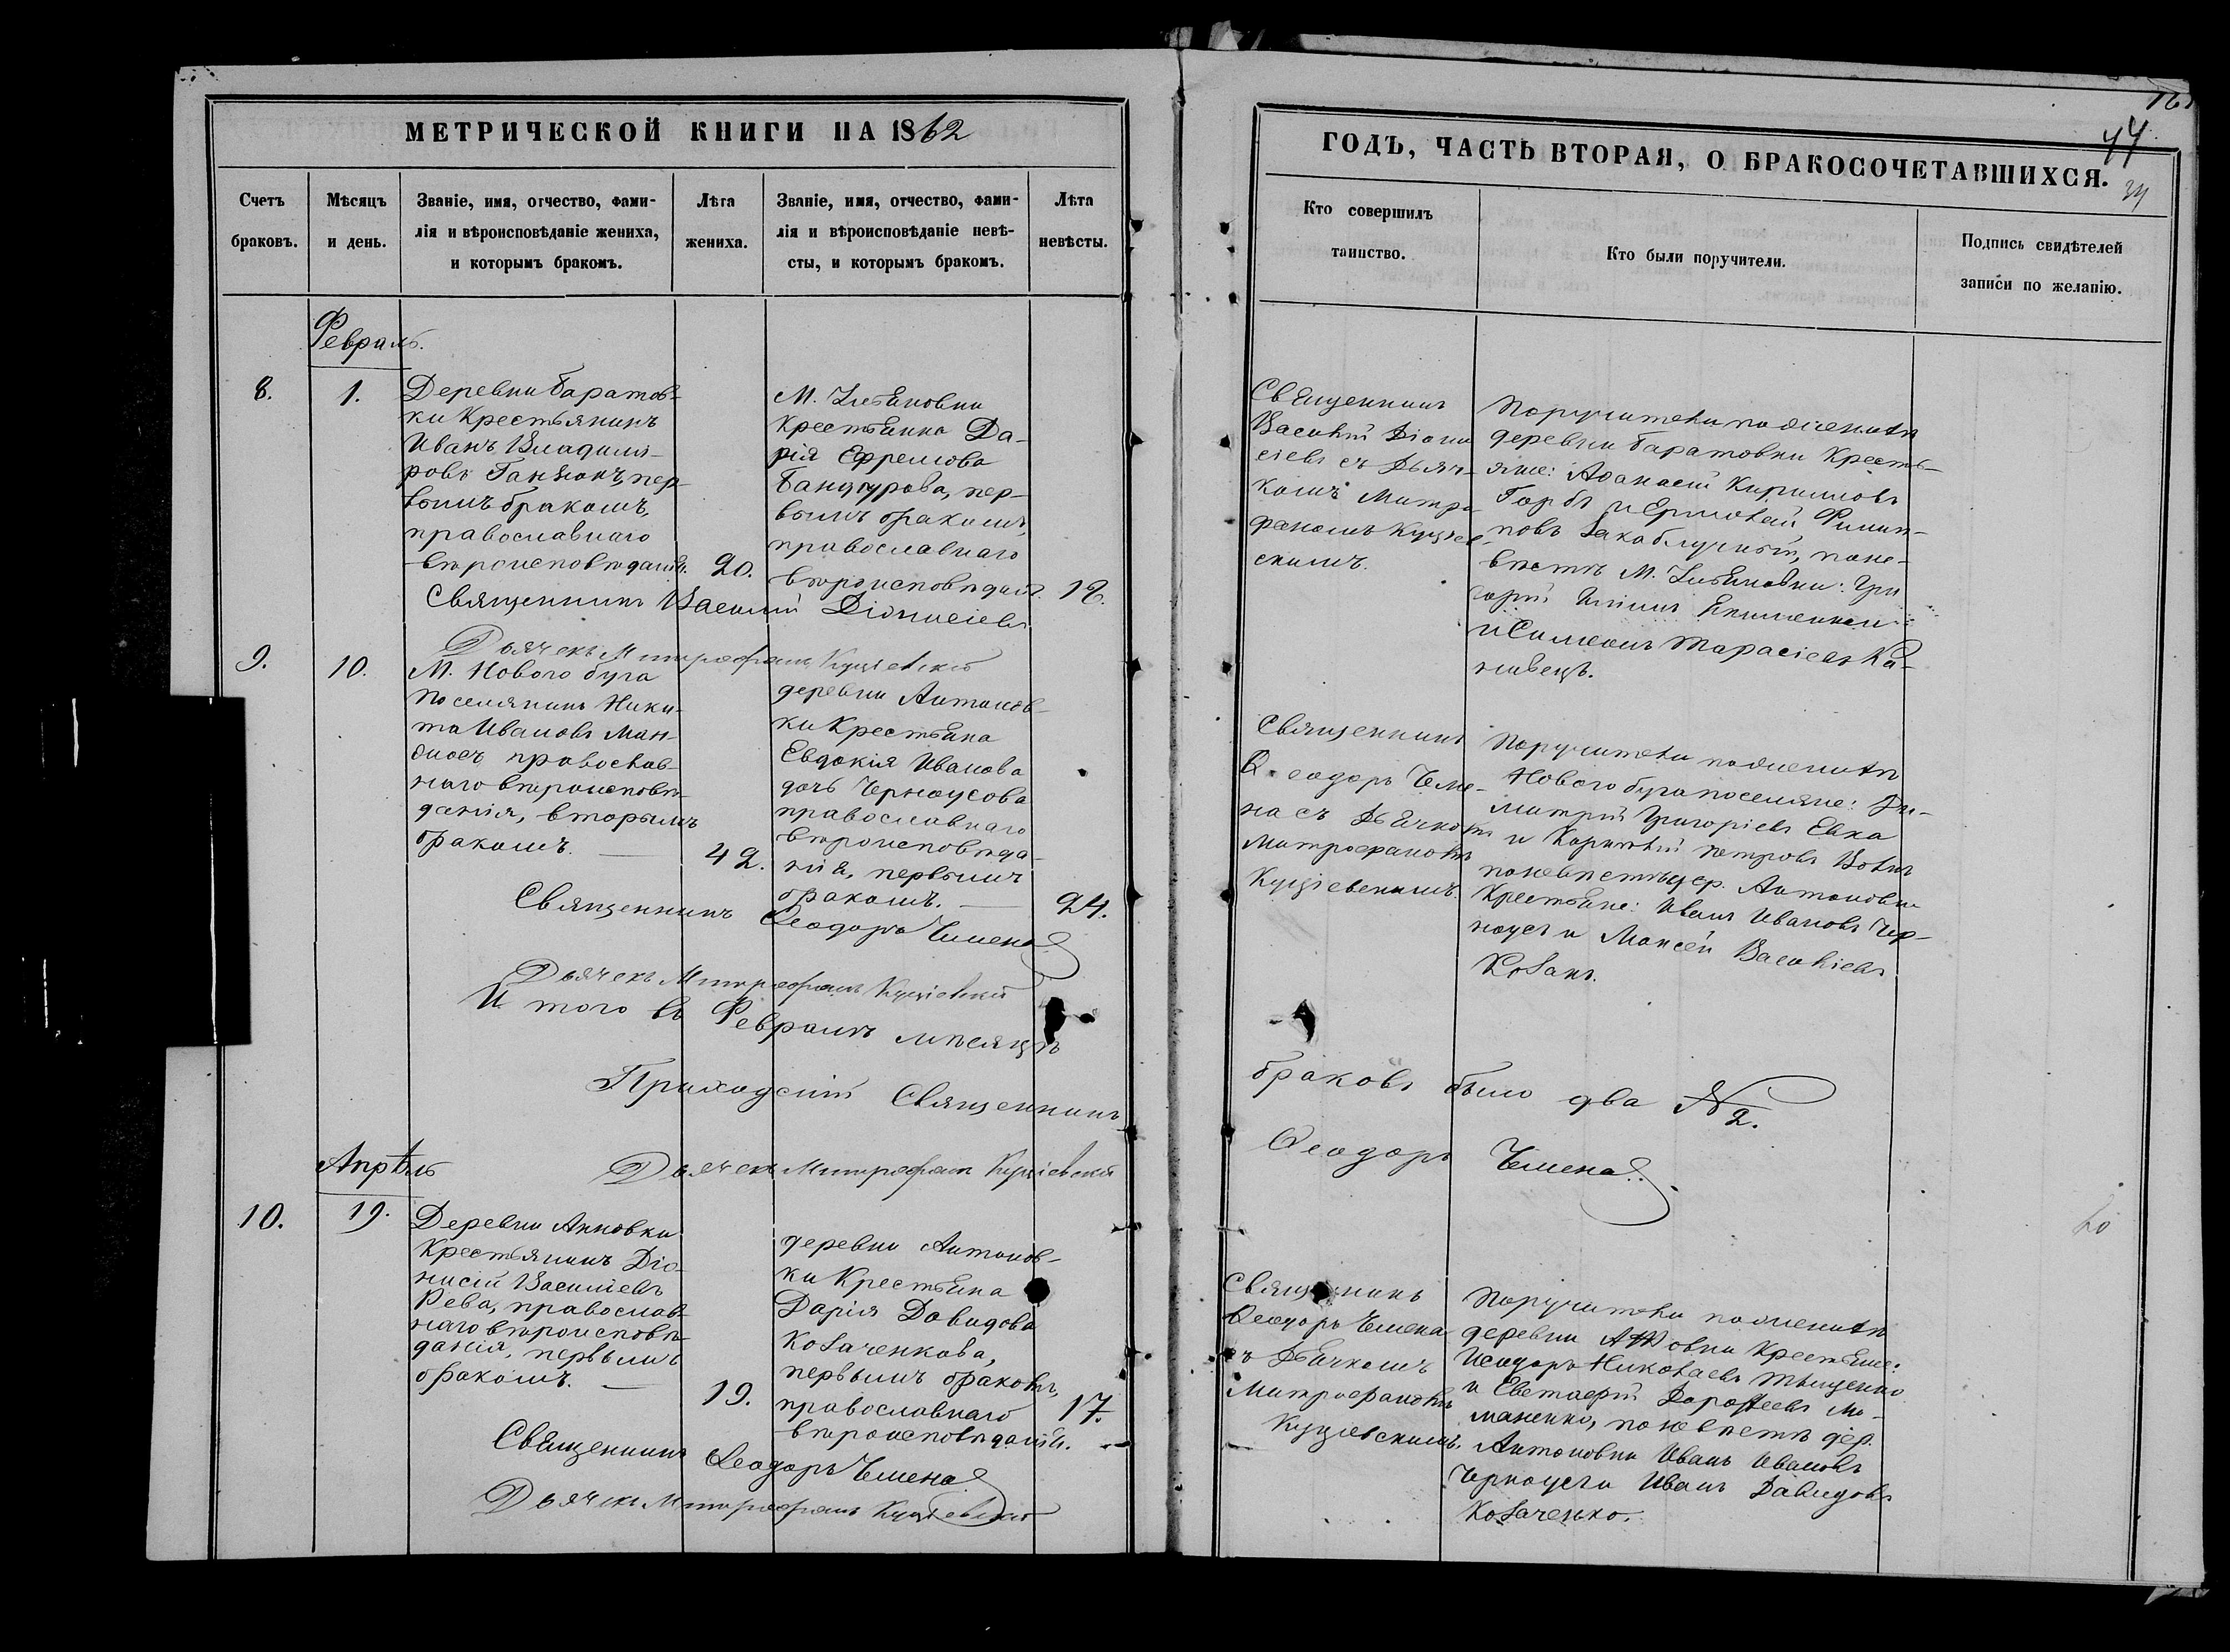 МЕТРИЧЕСКОЙ КНИГИ НА 1862
Счетъ браковъ.
Мѣсяцъ и день.
Званіе, имя, отчество, фами-
лія и вѣроисповѣданіе жениха,
и которымъ бракомъ.
Лѣта жениха.
Званіе, имя, отчество, фами-
лія и вѣроисповѣданіе невѣ-
сты, и которымъ бракомъ.
Лѣта невѣсты.
Февраль.
8.
1.
Деревни Баратов-
ки Крестьянинъ
Иванъ Владимі-
ровъ пер-
вымъ бракомъ,
православнаго
вѣроисповѣданія.
20.
М.
Крестьянка Да-
рія Ефремова
Бандурова, пер-
вымъ бракомъ,
православнаго
вѣроисповѣданія.
18.
Священникъ Василий Діонисіевъ
Дьячекъ Митрофанъ
9.
10.
М. Нового Буга
поселянинъ Ники-
та Ивановъ Ман-
православ-
наго вѣроисповѣ-
данія, вторымъ
бракомъ.
42.
деревни Антонов-
ки Крестьянка
Евдокія Иванова
дочь Черноусова
православнаго
вѣроисповѣда-
нія, первымъ
бракомъ.
24.
Священникъ Ѳеодоръ Чемена
Дьячекъ Митрофанъ
Итого въ Февралѣ мѣсяцѣ
Приходскій Священникъ
Дьячекъ Митрофанъ
Апрѣль
10.
19.
Деревни Анновки
Крестьянинъ Діо-
нисій Василіевъ
Рева, православ-
наго вѣроисповѣ-
данія, первымъ
бракомъ.
19.
деревни Антонов-
ки Крестьянка
Дарія Давидова
Козаченкова,
первымъ бракомъ,
православнаго
вѣроисповѣданія.
17.
Священникъ Ѳеодоръ Чемена
Дьячекъ Митрофанъ
44
34
ГОДЪ, ЧАСТЬ ВТОРАЯ, О БРАКОСОЧЕТАВШИХСЯ.
Кто совершилъ таинство.
Кто были поручители.
Подпись свидѣтелей
записи по желанію.
Священникъ
Василій Діони
сіевъ съ Дьяч-
комъ Митро
фаномъ
скимъ.
Поручители по женихѣ
деревни Баратовки Кресть-
яне: Аѳанасій Кирилловъ
Горбъ и Ермолай Филип-
повъ по не-
вѣстѣ М. Гри
горій
и Симеонъ Тарасіевъ Ка-
нивецъ.
Священникъ
Ѳеодоръ Чеме-
на съ Дьячкомъ
Митрофаномъ
Поручители по женихѣ
Нового Буга поселяне: Ди-
митрій Григоріевъ Евка
и Петровъ
по невѣстѣ дер. Антоновки
Крестьяне: Иванъ Ивановъ Чер-
ноусъ и Моисей Василіевъ
Козакъ.
браковъ было два № 2.
Ѳеодоръ Чемена
Священникъ
Ѳеодоръ Чемена
съ Дьячкомъ
Митрофаномъ
Поручители по женихѣ
деревни Крестьяне:
Николаевъ Тыщенко
и Дороѳеевъ Ма-
маненко, по невѣстѣ дер.
Антоновки Иванъ Ивановъ
Черноусъ и Иванъ Давидовъ
Козаченко.